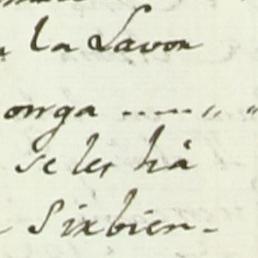 la Lavon
onga ......,, "
se les hà
Sixbien-